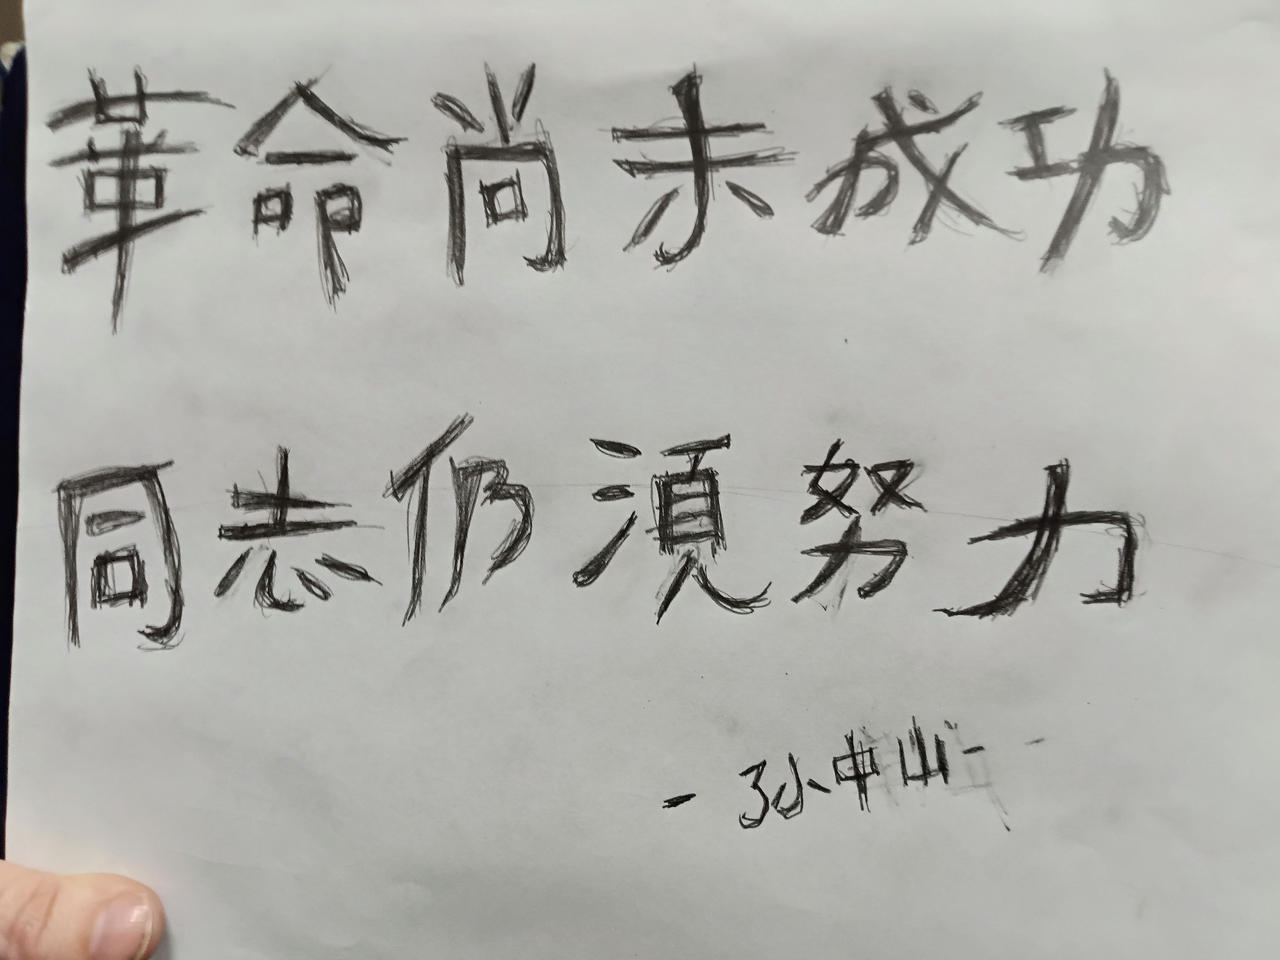 革命尚未成功
同志仍須努力
- 孙中山 -